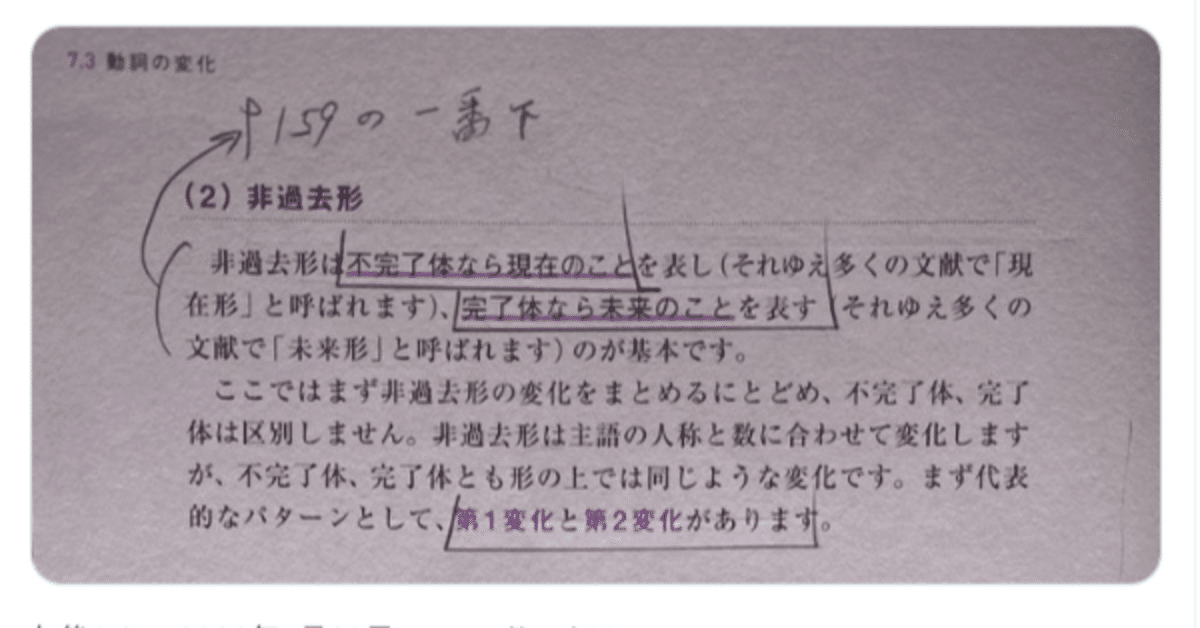 7.3 動詞の変化
p159の一番下
(2) 非過去形
非過去形は不完了体なら現在のことを表し(それゆえ多くの文献で「現
在形」と呼ばれます)、完了体なら未来のことを表す(それゆえ多くの
文献で「未来形」と呼ばれます)のが基本です。
ここではまず非過去形の変化をまとめるにとどめ、不完了体、完了
体は区別しません。非過去形は主語の人称と数に合わせて変化します
が、不完了体、完了体とも形の上では同じような変化です。まず代表
的なパターンとして、第1変化と第2変化があります。